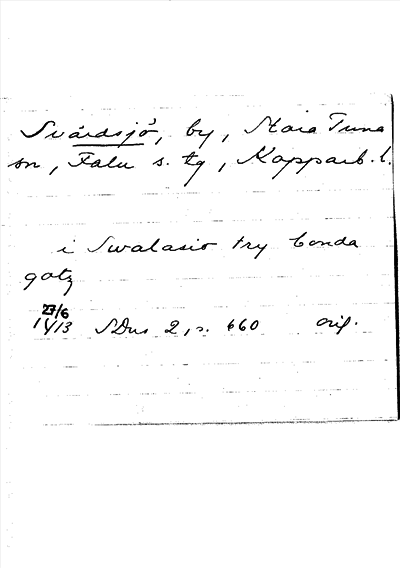 Svärdsjö, by, Stora Tuna
sn, Falu s. tg, Kopparb. l.
i Swalasio try bonda
gotz
23/6
1413 SDns 2, s. 660 orig.